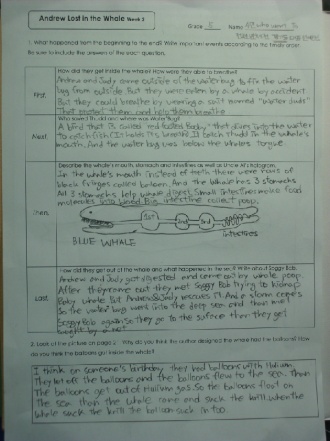 Andrew Lost in the Whale Week 3
Grade 5 Name
1. What happened from the beginning to the end? Write important events according to the time order.
Be sure to include the answers of the each question.
How did they get inside the whale? How were they able to breathe?
First,
Andrew and Judy came outside of the water bug to fix the water
bug from outside. But they were eaten by a whale by accident
But they could breathe by wearing a suit named "water duds"
That protect them and help them breathe
Next,
A bird that is called red footed booby that dives into the water
to catch fish. It holds its breath. It in the whale's
mouth. And the water bug was below the whale's tongue.
Describe the whale's mouth, stomach and intestines as well as Uncle Al's hologram.
Then,
In the whale's mouth instead of teeth there were rows of
black fringes called baleen. And the whale has 3 stomachs
All 3 stomachs help whale digest. Small intestines make food
molecules into blood. Big intestine collect poop.
1st 2nd 3rd
intestines
BLUE WHALE
Last,
How did they get out of the whale and what happened in the sea? Write about Soggy Bob.
Andrew and Judy got digested and came out by whale poop.
After they came out they met Soggy Bob trying to kidnap
Baby whale But Andrew&Judy rescues it. And a storm comes
So the water bug went into the deep sea and then met
Soggy Bob again So they go to the surface then they get
caught by a net
2. Look at the picture on page . Why do you think the author designed the whale had the balloons? How
do you think the balloons got inside the whale?
I think on someone's birthday they had balloons with Helium.
They let off the balloons and the balloons flew to the sea. Then
The balloons get out of Helium gas. So the balloons float on
The sea then the whale came and suck the krill. when the
whale suck the krill the balloon suck in too.